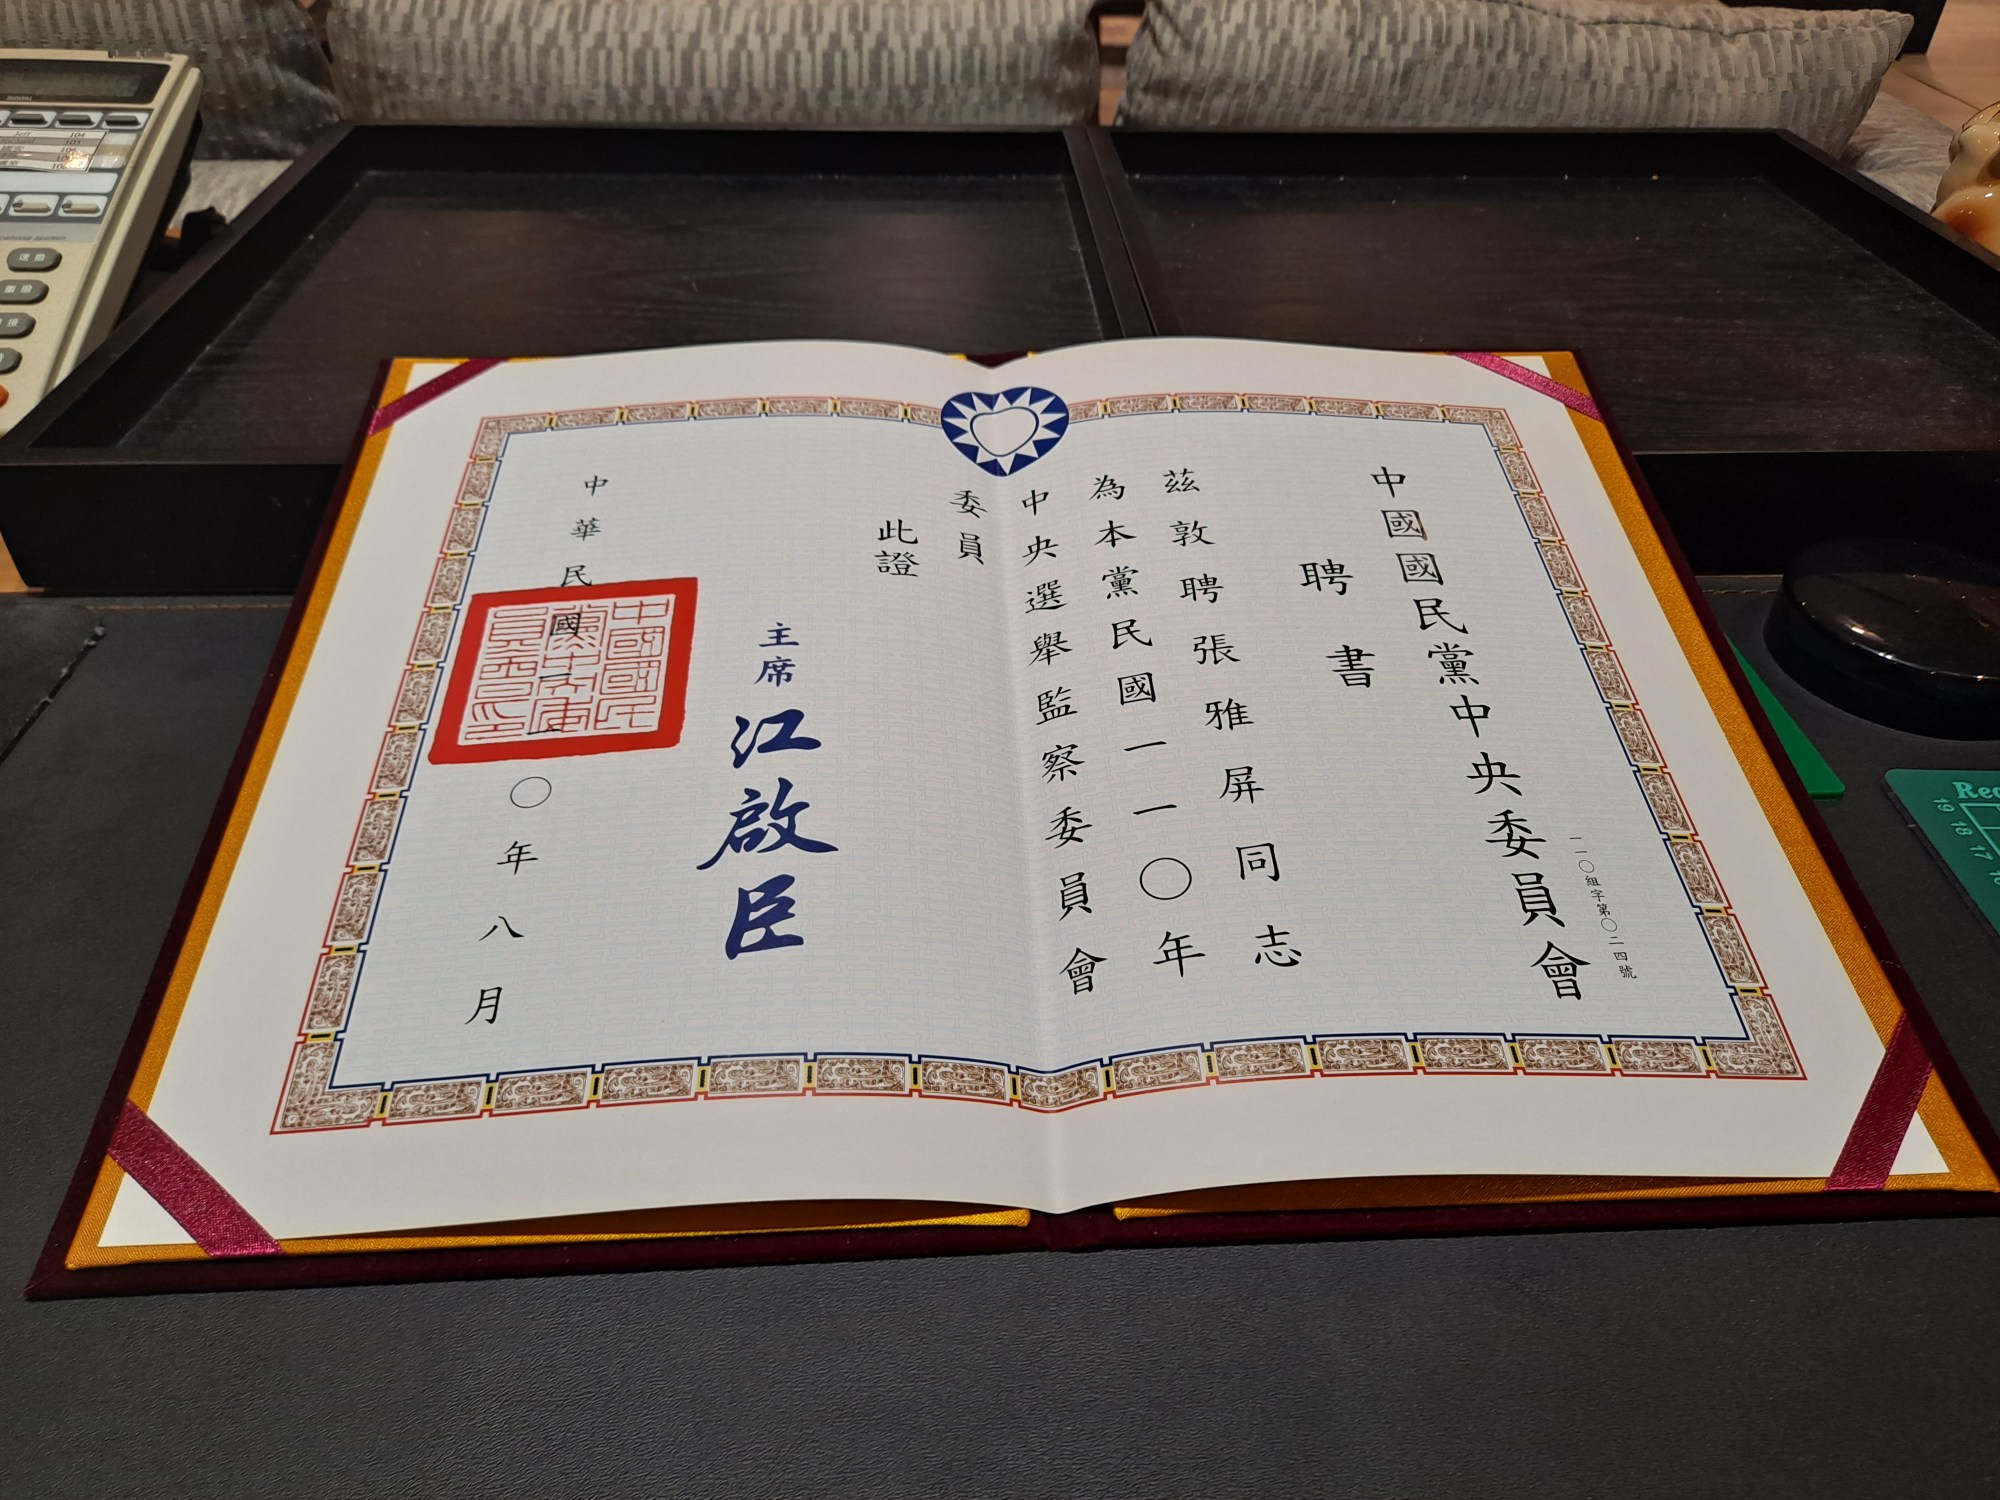 中國國民黨中央委員會
聘書
一一〇組字第〇二四號
茲敦聘張雅屏同志
為本黨民國一一〇年
中央選舉監察委員會
委員
此證
主席 江啟臣
中華民國一一〇年八月
中國國民
黨中央委
員會之印
Jeff 104
105
Rec
19
18
17